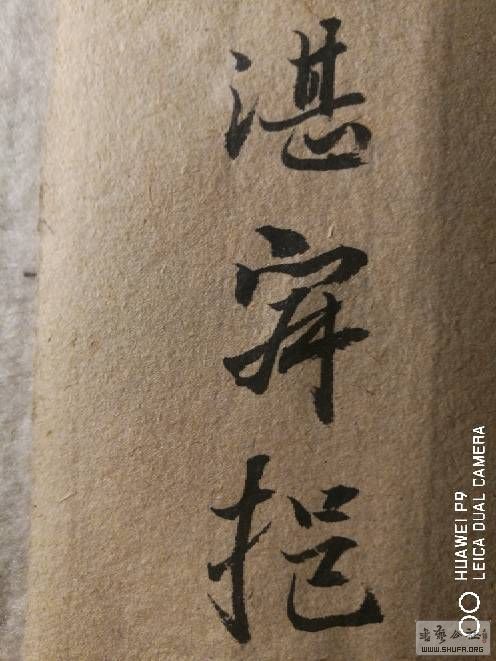 湛
挹
HUAWEI P9
LEICA DUAL CAMERA
WWW.SHUFA.ORG